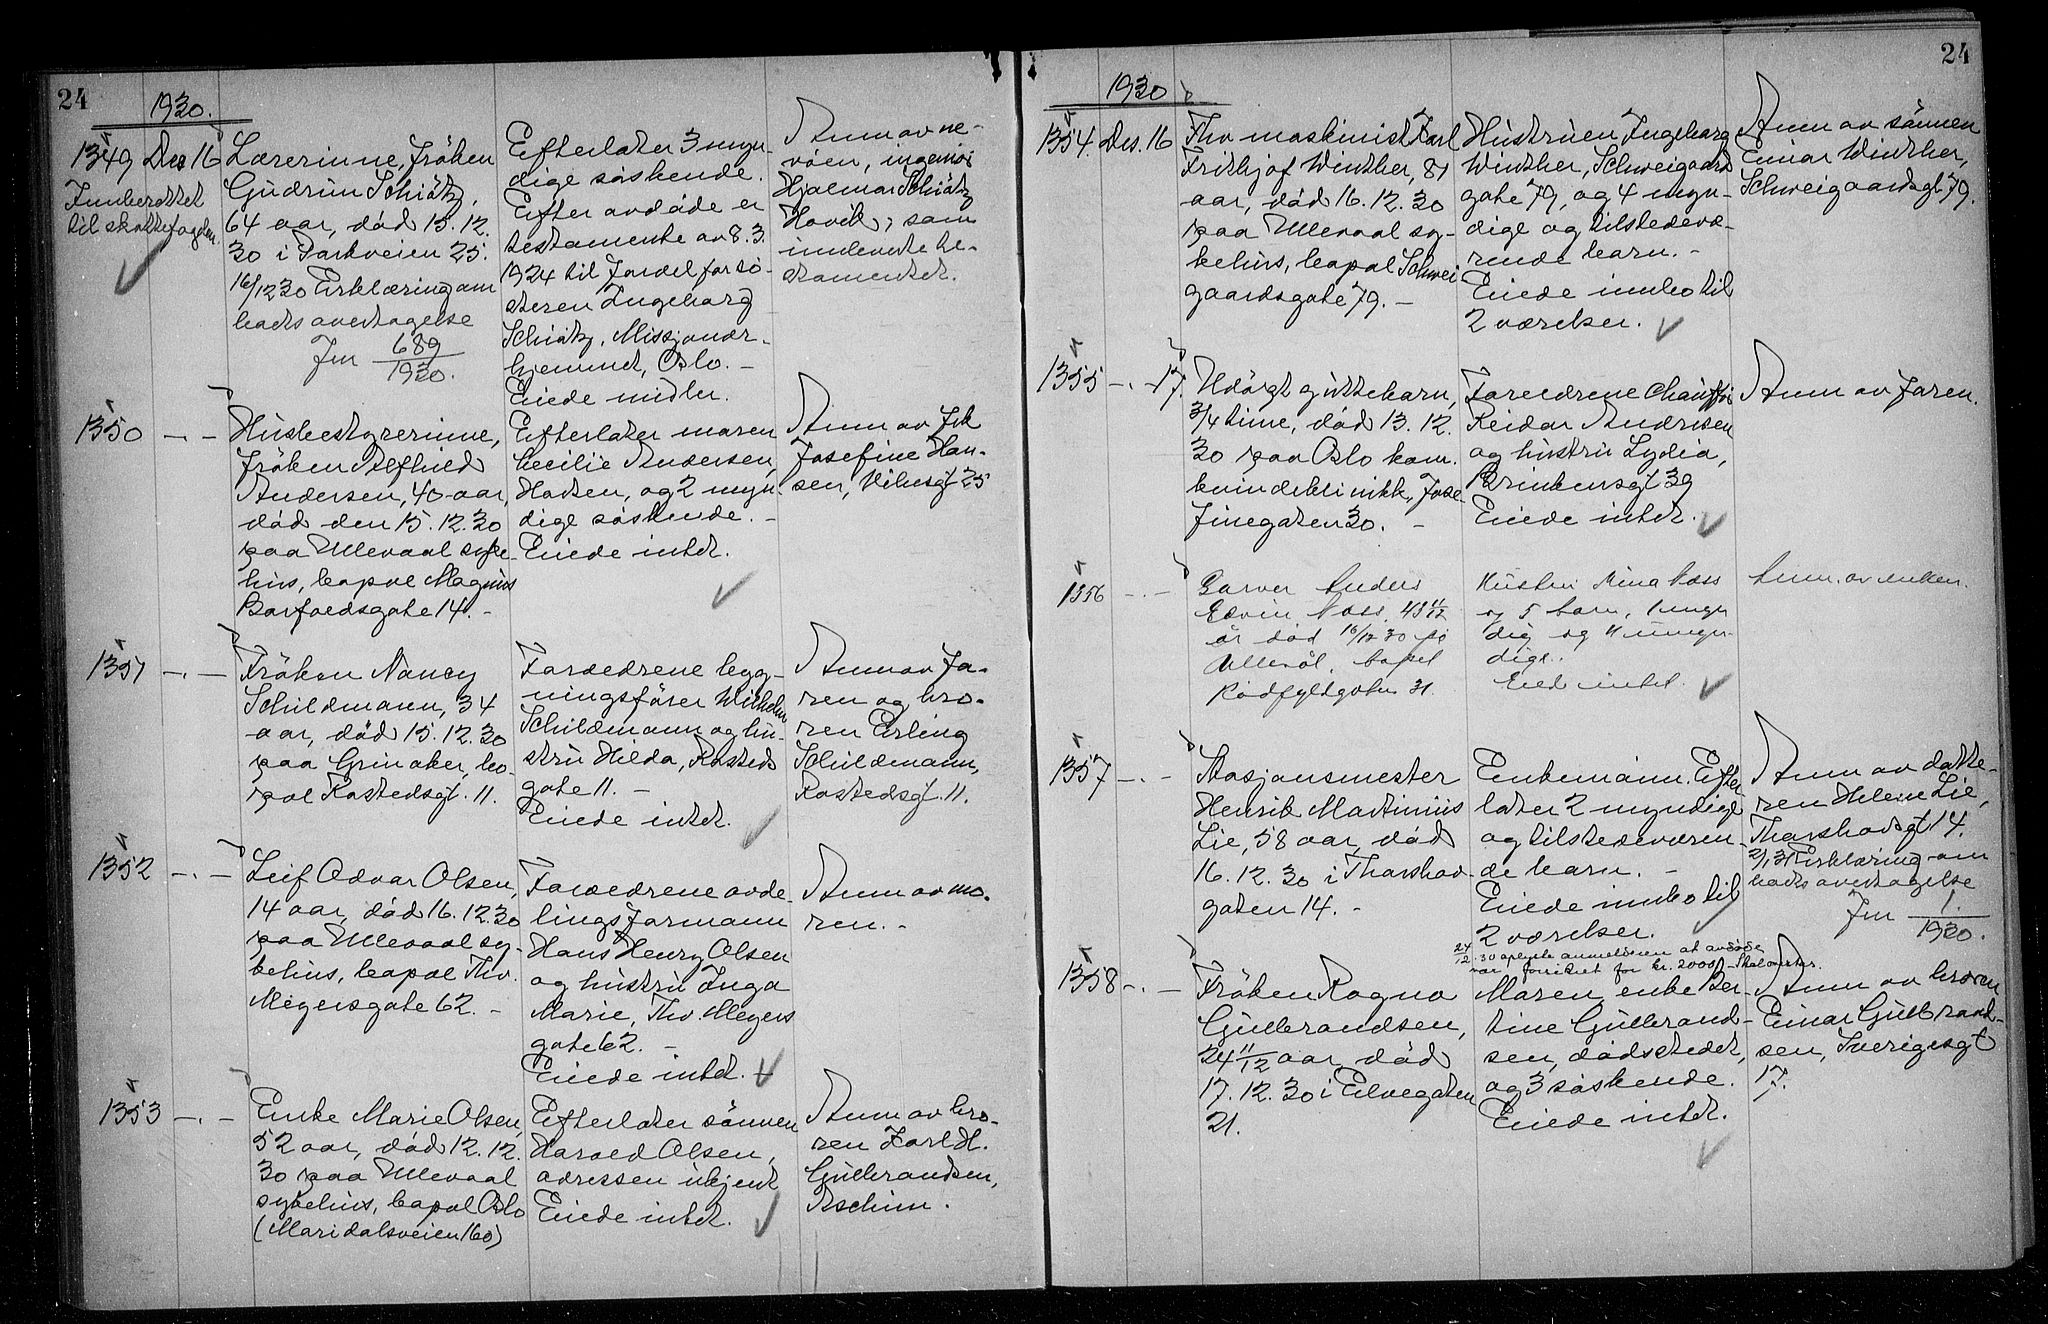 24
1930.
1349 Des 16
Innberettet
til skattefogden.
Lærerinne, fröken
Gudrun Schiøtz,
64 aar, död 15.12.
30 i Parkveien 25.
16/12 30 Erklæring om
boets overtagelse
Jnr 689
1930.
Efterlater 3 myn-
dige söskende.
Efter avdöde er
testamente av 8.3.
1924 til fordel for sö-
steren Ingeborg
Schiøtz, Missjonær-
hjemmet, Oslo. -
Eiede midler.
Anm av ne-
vöen, ingeniör
Hjalmar Schiøtz
Hövik, som
innleverte te-
stamentet.
1350 -.-
Husbestyrerinne,
fröken Alfhild
Andersen, 40 aar,
död den 15.12.30
paa Ullevaal syke-
hus, bopæl Magnus
Barfoedsgate 14. -
Efterlater moren
Cecilie Andersen,
Horten, og 2 myn-
dige söskende. -
Eiede intet.
Anm av Frk
Josefine Han-
sen, Vibesgt 25
1351 -.-
Fröken Nancy
Schildmann, 34
aar, död 15.12.30
paa Grinaker, bo-
pæl Rostedsgt. 11.
Forældrene bygg-
ningsförer Wilhelm
Schildmann og hu-
stru Hilda, Rosteds
gate 11. -
Eiede intet.
Anm av fa-
ren og bro-
ren Erling
Schildmann,
Rostedsgt. 11.
1352 -.-
Leif Odvar Olsen,
14 aar, död 16.12.30
paa Ullevaal sy-
kehus, bopæl Thv.
Meyersgate 62. -
Forældrene avde-
lingsformann
Hans Henry Olsen
og hustru Inga
Marie, Thv. Meyers
gate 62. -
Eiede intet.
Anm av mo-
ren. -
1353 -.-
Enke Marie Olsen,
52 aar, död 12.12.
30 paa Ullevaal
sykehus, bopæl Oslo
(Maridalsveien 160)
Efterlater sönnen
Harald Olsen,
adressen ukjent
Eiede intet.
Anm av bro-
ren Karl H.
Gulbrandsen,
Askim.
24
1930
1354. Des. 16
Fhv maskinist Karl
Fridhjof Winther, 81
aar, död 16.12.30
paa Ullevaal sy-
kehus, bopæl Schwei
gaardsgate 79. -
Hustruen Ingeborg
Winther, Schweigaards
gate 79, og 4 myn-
dige og tilstedevæ-
rende barn. -
Eiede innbo til
2 værelser.
Anm av sönnen
Einar Winther,
Schweigaardsgt. 79.
1355 -.- 17.
Udöpt guttebarn,
3/4 time, död 13.12.
30 paa Oslo kom.
kvindeklinikk, Jose-
finegaten 30. -
Forældrene chaufför
Reidar Andresen
og hustru Lydia,
Brinkensgt 39
Eiede intet.
Anm av faren.
1356 -.-
Garver Anders
Edvin Næss, 43 11/12
år död 16/12 30 på
Ullevål, bopel
Rödfyldgaten 31.
Hustru Mina Næss
og 5 barn, 1 myn
dig og 4 umyn-
dige.
Eied intet.
Anm. av enken.
1357 -.-
Stasjonsmester
Henrik Martinius
Lie, 58 aar, död
16.12.30 i Thorshov-
gaten 14. -
Enkemann. Efter
later 2 myndige
og tilstedeværen-
de barn. -
Eiede innbo til
2 værelser.
Anm av datte-
ren Helene Lie,
Thorshovsgt 14.
2/1 31 Erklæring om
boets overtagelse
Jnr 1.
1930.
24/12.30 oplyste anmelderen at avdöde
var forsikret for kr. 2000 -
1358 -.-
Fröken Ragna
Gulbrandsen,
24 11/12 aar, död
17.12.30 i Elvegaten
21.
Moren, enke Ber-
tine Gulbrand-
sen, dödsstedet,
og 3 söskende.
Eiede intet.
Anm av broren
Einar Gulbrand-
sen, Sverigesgt
17.